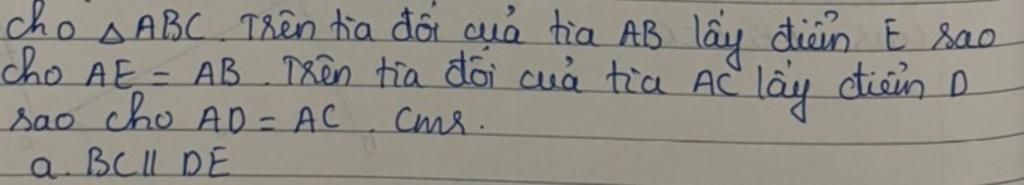 cho △ABC. Trên tia đối của tia AB lấy điểm E sao
cho AE = AB. Trên tia đối của tia AC lấy điểm D
sao cho AD = AC. Cmr.
a. BC // DE